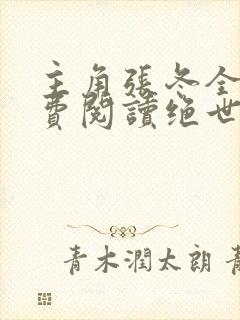 主角張冬全
費閱讀绝世
青木潤太朗 青